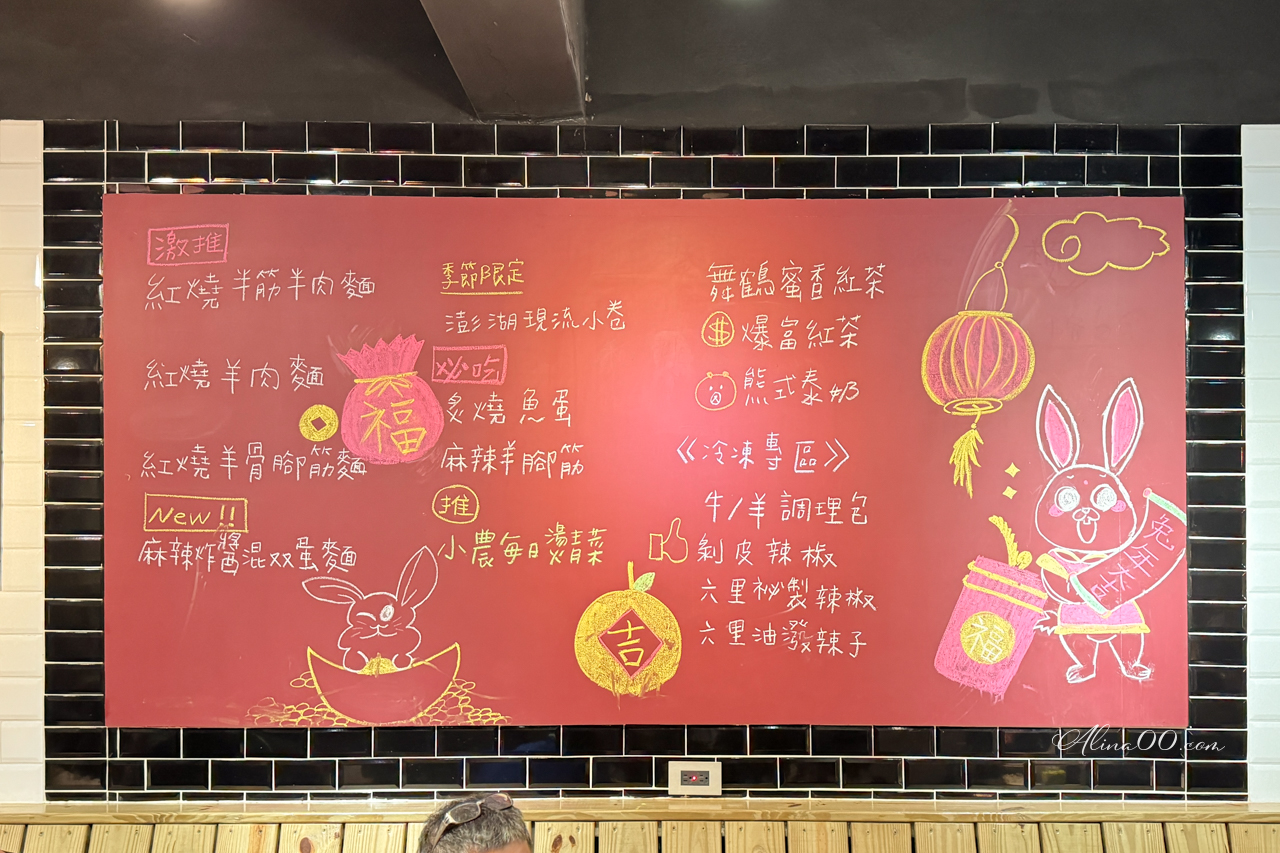 激推
紅燒半筋羊肉麵
紅燒羊肉麵
紅燒羊骨腳筋麵
New!!
麻辣炸醬混双蛋麵
福
季節限定
澎湖現流小卷
必吃
炙燒魚蛋
麻辣羊腳筋
推
小農每日燙青菜
吉
舞鶴蜜香紅茶
$ 爆富紅茶
熊式泰奶
《冷凍專區》
牛/羊調理包
剝皮辣椒
六里祕製辣椒
六里油潑辣子
福
兔年大吉
Alina00.com